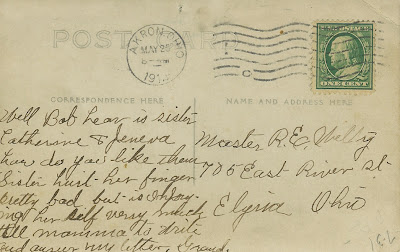 POST CARD
AKRON OHIO
MAY 25
191
C
ONE CENT
CORRESPONDENCE HERE
NAME AND ADDRESS HERE
Well Bob hear is sister
Catherine & Jeneva
how do you like them
Sister hurt her finger
pretty bad but is enjoy-
ing her self very much
tell mamma to write
and answer my letter, Grand.
Master R.E. Welly
705 East River St.
Elyria Ohio